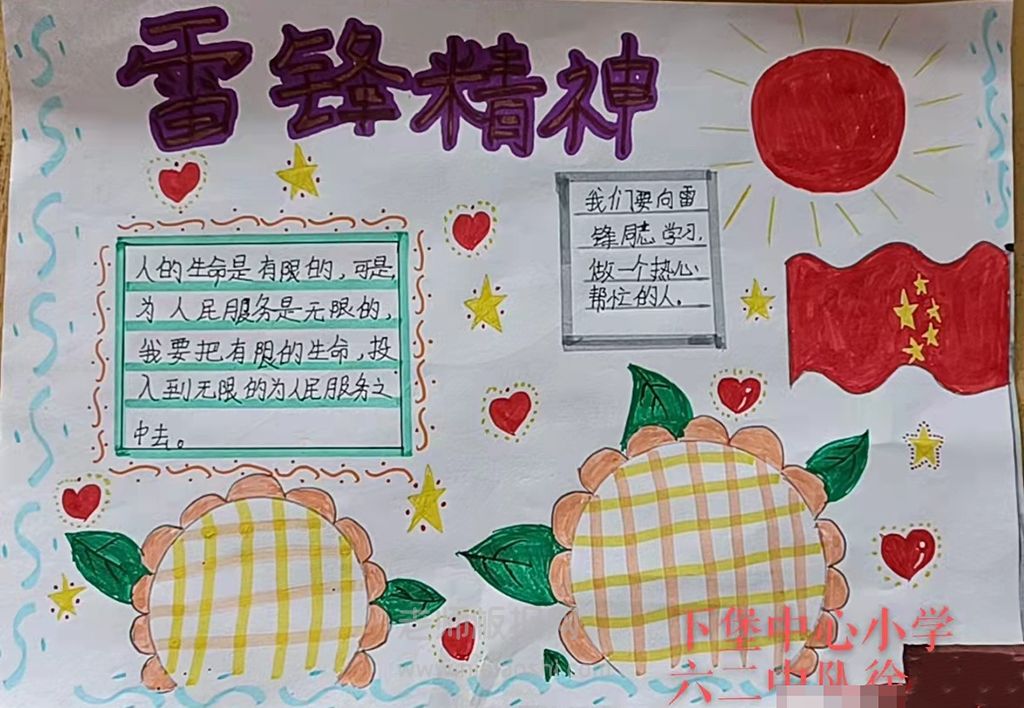 雷锋精神
人的生命是有限的，可是，
为人民服务是无限的，
我要把有限的生命，投
入到无限的为人民服务之
中去。
我们要向雷
锋同志学习，
做一个热心
帮忙的人。
下堡中心小学
六二中队徐